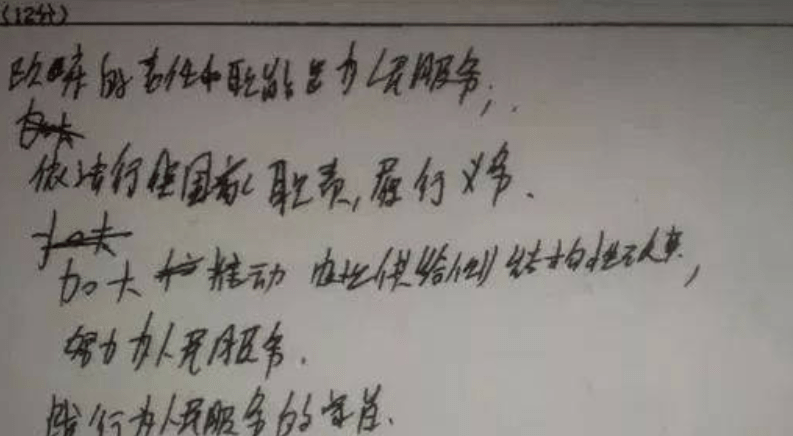 (12分)
政府的责任和职能是为人民服务;.
依法行使国家职责,履行义务.
加大推动 农业供给侧结构性改革,
努力为人民服务.
践行为人民服务的宗旨.